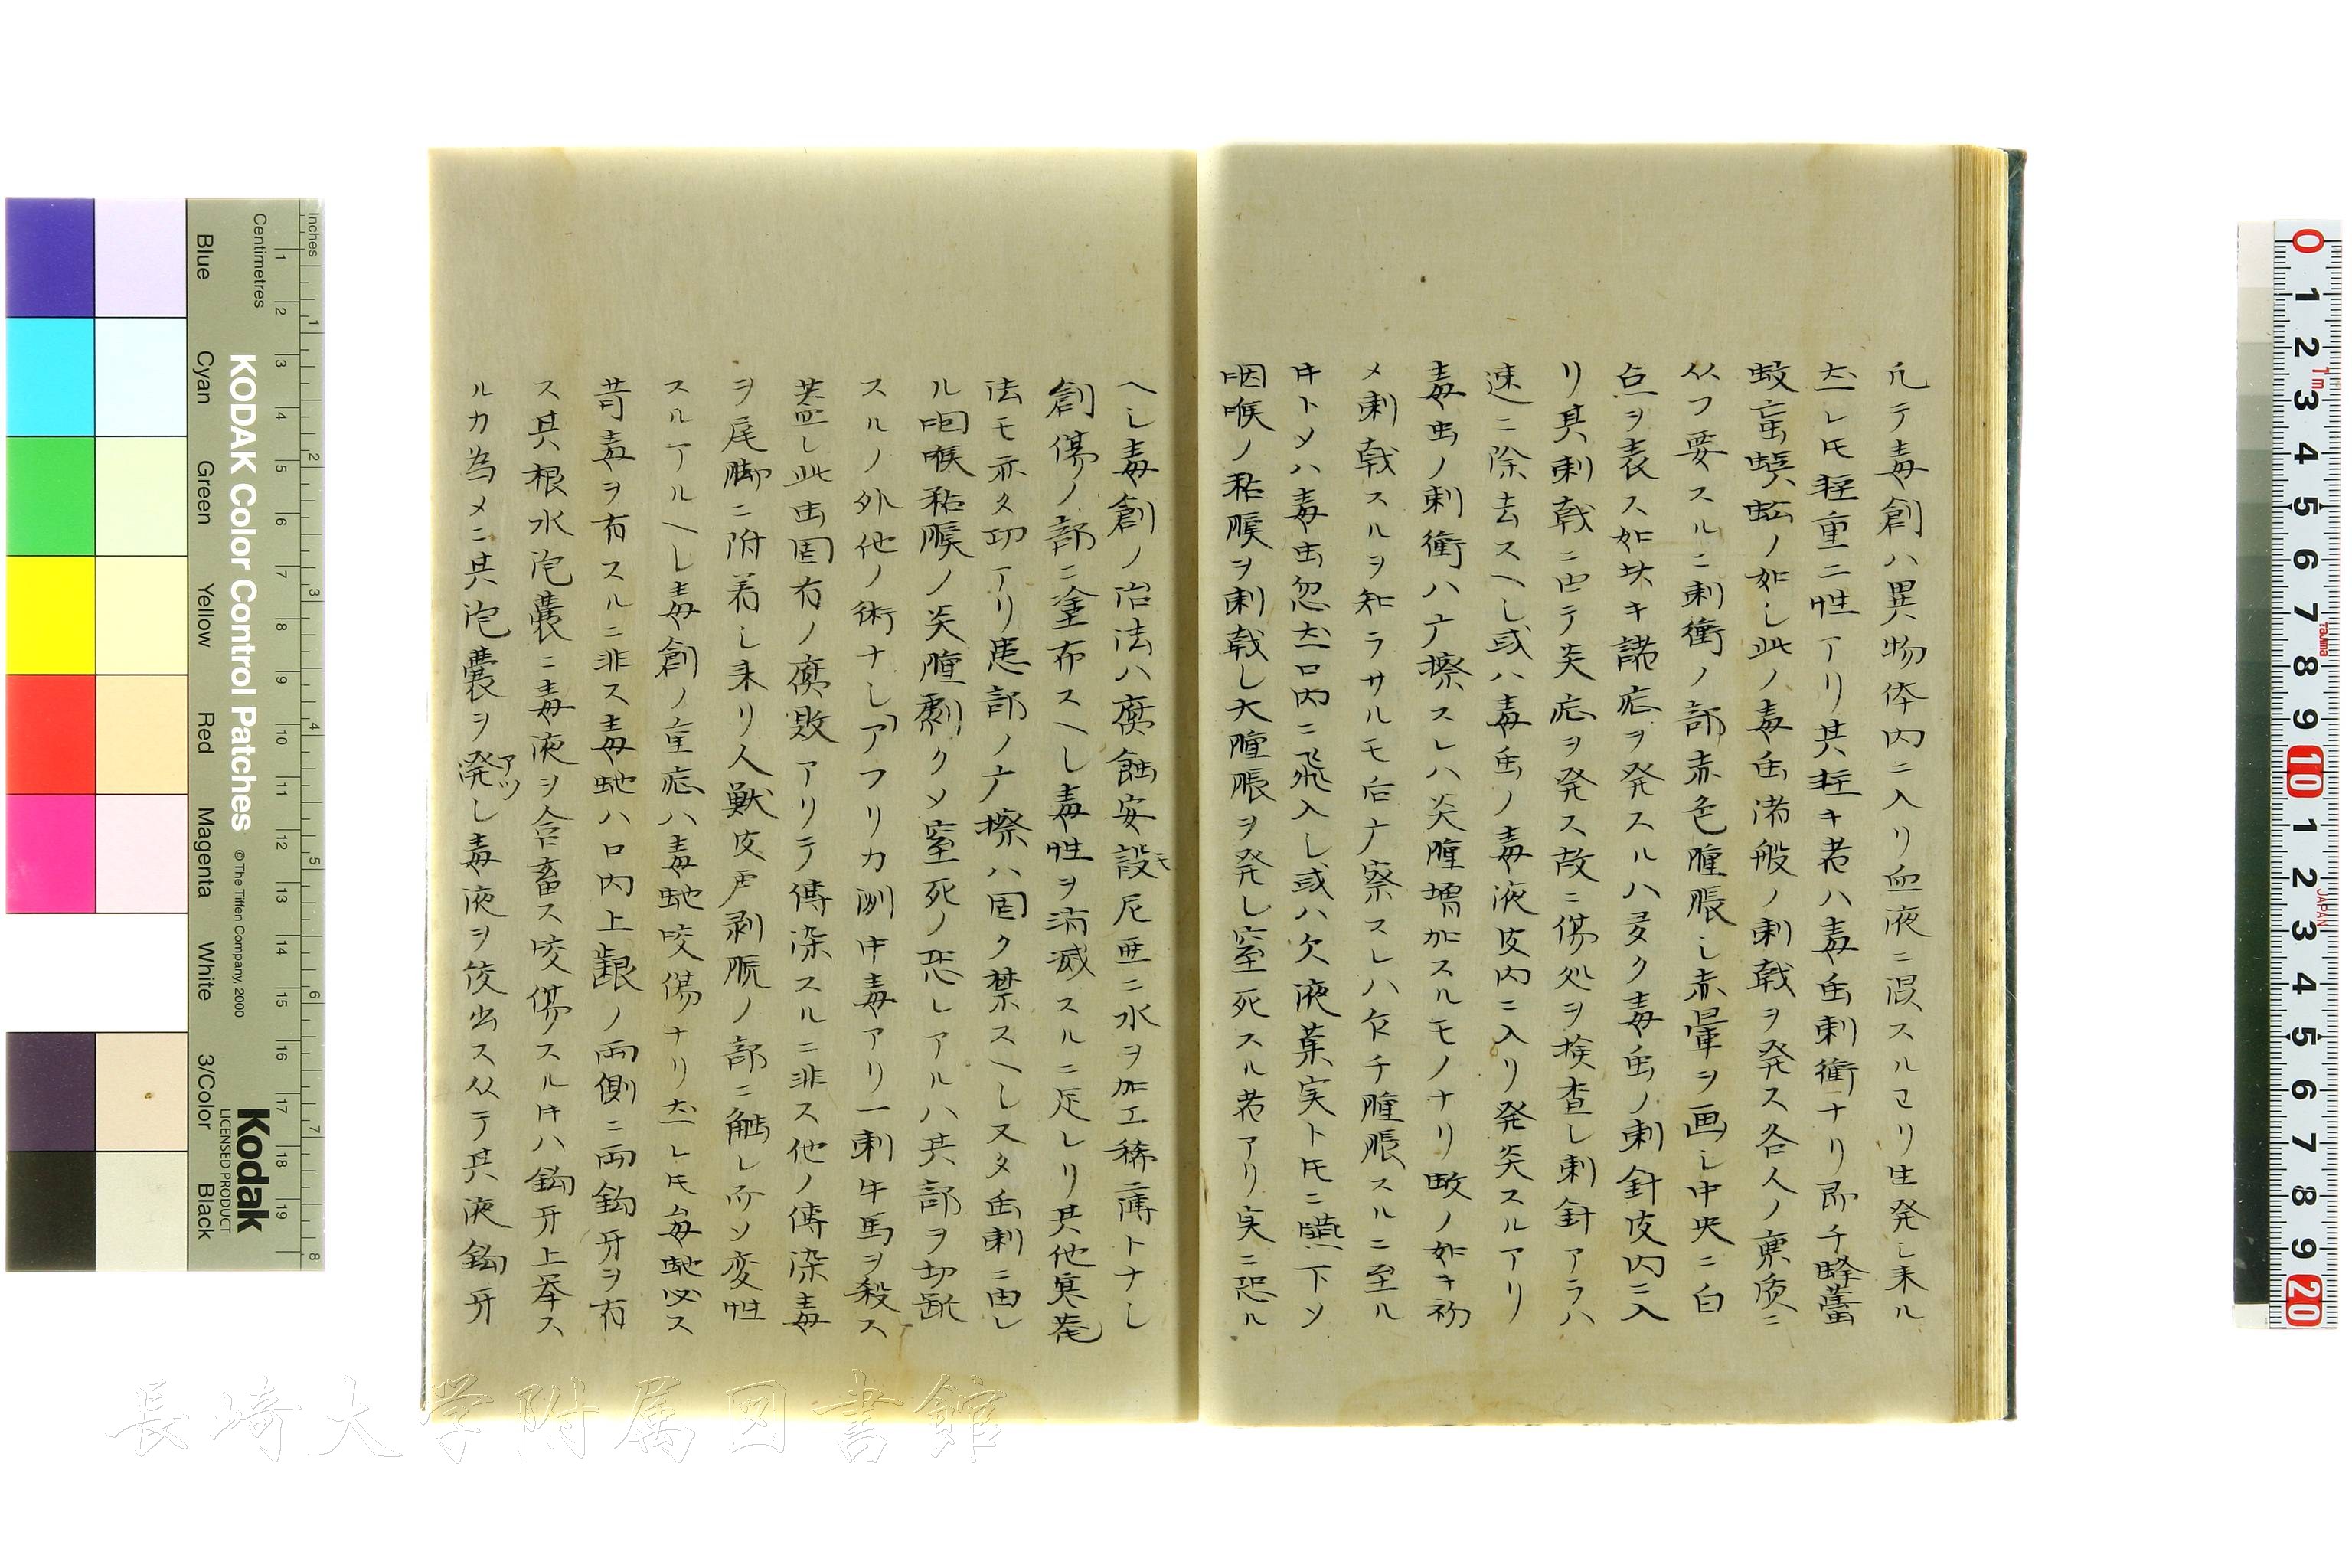 凡テ毒創ハ異物体内ニ入リ血液ニ混スルヿリ生発シ来ル
左レ𪜈軽重二性アリ其軽キ者ハ毒虫刺衝ナリ即チ蜂蠆
蚊虻蜈蚣ノ如シ此ノ毒虫諸般ノ刺戟ヲ発ス各人ノ稟质ニ
从フ要スルニ刺衝ノ部赤色腫脹シ赤暈ヲ画シ中央ニ白
点ヲ表ス如此キ諸症ヲ発スルハ多ク毒虫ノ刺針皮内ニ入
リ其刺戟ニ由テ炎症ヲ発ス故ニ傷処ヲ検査シ刺針アラハ
速ニ除去スヘシ或ハ毒虫ノ毒液皮内ニ入リ発炎スルアリ
毒虫ノ刺衝ハ摩擦スレハ炎腫増加スルモノナリ蚊ノ如キ初
メ刺戟スルヲ知ラサルモ后摩察スレハ乍チ腫脹スルニ至ル
𪜈トメハ毒虫忽左口内ニ飛入シ或ハ欠液菓実ト𪜈ニ嚥下ソ
咽喉ノ粘膜ヲ刺戟し大腫脹ヲ発シ窒死スル者アリ実ニ恐ル
ヘシ毒創ノ治法ハ腐蝕安設モ尼亜ニ水ヲ加エ稀薄トナシ
創傷ノ部ニ塗布スヘシ毒性ヲ消滅スルニ足レリ其他冥菴
法モ亦タ功アリ患部ノ摩擦ハ固ク禁スヘシ又タ虫刺ニ由レ
ル咽喉粘膜ノ炎腫劇クソ窒死ノ恐レアルハ其部ヲ切開
スルノ外他ノ術ナシアフリカ洲中毒アリ一刺牛馬ヲ殺ス
蓋シ此虫固有ノ腐敗アリテ傳染スルニ非ス他ノ傳染毒
ヲ尾脚ニ附着シ来リ人獣皮膚剥脱ノ部ニ触レ而ソ変性
スルアルヘシ毒創ノ重症ハ毒蛇咬傷ナリ左レ𪜈毎蛇必ス
苛毒ヲ有スルニ非ス毒蛇ハ口内上齦ノ両側ニ両鈎牙ヲ有
ス其根水泡嚢ニ毒液ヲ含畜ス咬傷スル𪜈ハ鈎牙上挙ス
ルカ為メニ其泡嚢ヲ発アツシ毒液ヲ竣出ス从テ其液鈎牙
KODAK Color Control Patches
©The Tiffen Company, 2000
Kodak
LICENSED PRODUCT
Inches
Centimetres
Blue
Cyan
Green
Yellow
Red
Magenta
White
3/Color
Black
長崎大学附属図書館